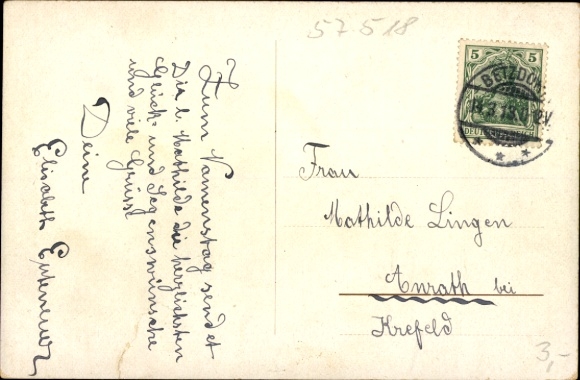 57518
Zum Namenstag sendet
Dir l. Mathilde die herzlichsten
Glück- und Segenswünsche
und viele Grüsse
Deine
Elisabeth
5 5
DEUTSCHES REICH
BETZDORF
Frau
Mathilde Lingen
Anrath bei
Krefeld
3,-